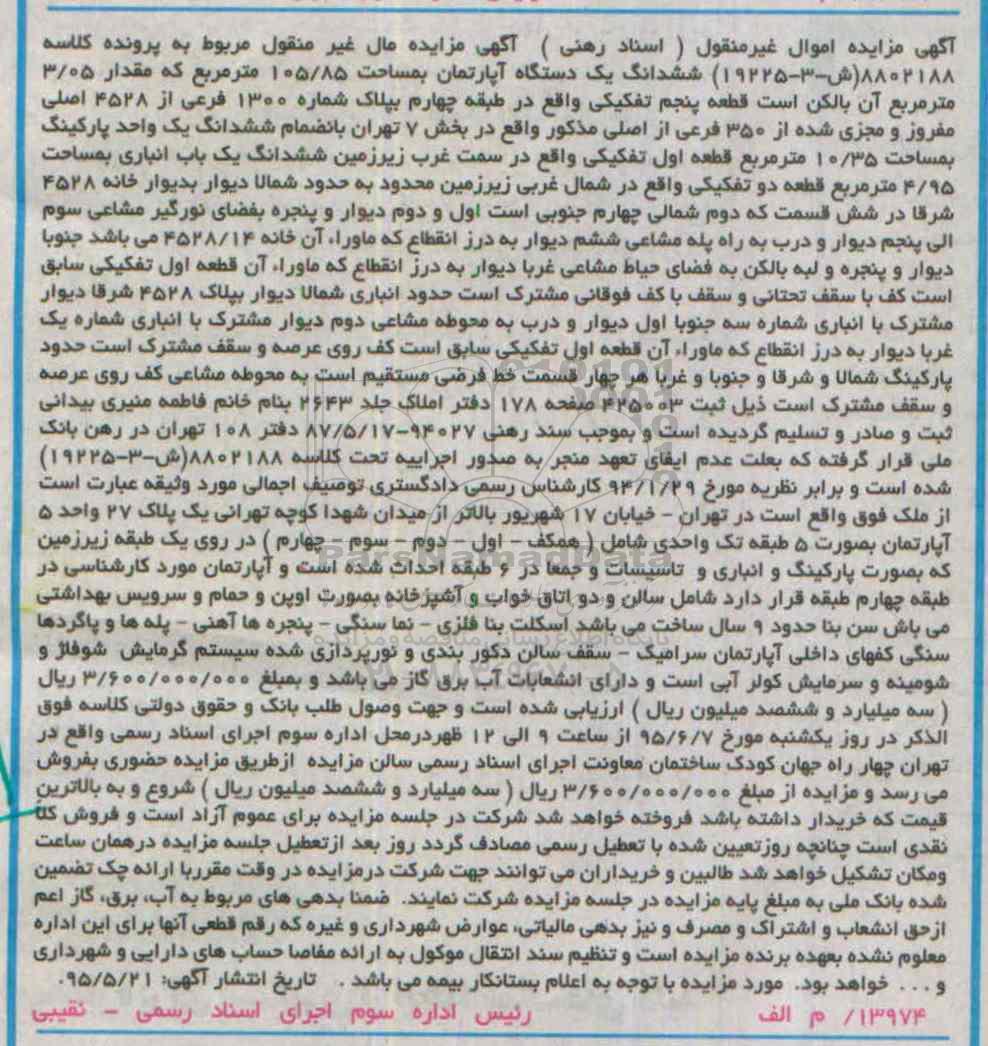 آگهی مزایده اموال غیرمنقول ( اسناد رهنی ) آگهی مزایده مال غیر منقول مربوط به پرونده کلاسه
۸۸۰۲۱۸۸(ش-۳-۱۹۲۲۵) ششدانگ یک دستگاه آپارتمان بمساحت ۱۰۵/۸۵ مترمربع که مقدار ۳/۰۵
مترمربع آن بالکن است قطعه پنجم تفکیکی واقع در طبقه چهارم بپلاک شماره ۱۳۰۰ فرعی از ۴۵۲۸ اصلی
مفروز و مجزی شده از ۳۵۰ فرعی از اصلی مذکور واقع در بخش ۷ تهران بانضمام ششدانگ یک واحد پارکینگ
بمساحت ۱۰/۳۵ مترمربع قطعه اول تفکیکی واقع در سمت غرب زیرزمین ششدانگ یک باب انباری بمساحت
۴/۹۵ مترمربع قطعه دو تفکیکی واقع در شمال غربی زیرزمین محدود به حدود شمالا دیوار بدیوار خانه ۴۵۲۸
شرقا در شش قسمت که دوم شمالی چهارم جنوبی است اول و دوم دیوار و پنجره بفضای نورگیر مشاعی سوم
الی پنجم دیوار و درب به راه پله مشاعی ششم دیوار به درز انقطاع که ماوراء آن خانه ۴۵۲۸/۱۴ می باشد جنوبا
دیوار و پنجره و لبه بالکن به فضای حیاط مشاعی غربا دیوار به درز انقطاع که ماوراء آن قطعه اول تفکیکی سابق
است کف با سقف تحتانی و سقف با کف فوقانی مشترک است حدود انباری شمالا دیوار بپلاک ۴۵۲۸ شرقا دیوار
مشترک با انباری شماره سه جنوبا اول دیوار و درب به محوطه مشاعی دوم دیوار مشترک با انباری شماره یک
غربا دیوار به درز انقطاع که ماوراء آن قطعه اول تفکیکی سابق است کف روی عرصه و سقف مشترک است حدود
پارکینگ شمالا و شرقا و جنوبا و غربا هر چهار قسمت خط فرضی مستقیم است به محوطه مشاعی کف روی عرصه
و سقف مشترک است ذیل ثبت ۴۲۵۰۰۳ صفحه ۱۷۸ دفتر املاک جلد ۲۶۴۳ بنام خانم فاطمه منیری بیدانی
ثبت و صادر و تسلیم گردیده است و بموجب سند رهنی ۹۴۰۲۷-۸۷/۵/۱۷ دفتر ۱۰۸ تهران در رهن بانک
ملی قرار گرفته که بعلت عدم ایفای تعهد منجر به صدور اجراییه تحت کلاسه ۸۸۰۲۱۸۸(ش-۳-۱۹۲۲۵)
شده است و برابر نظریه مورخ ۹۴/۱/۲۹ کارشناس رسمی دادگستری توصیف اجمالی مورد وثیقه عبارت است
از ملک فوق واقع است در تهران - خیابان ۱۷ شهریور بالاتر از میدان شهدا کوچه تهرانی یک پلاک ۲۷ واحد ۵
آپارتمان بصورت ۵ طبقه تک واحدی شامل ( همکف - اول - دوم - سوم - چهارم ) در روی یک طبقه زیرزمین
که بصورت پارکینگ و انباری و تاسیسات و جمعا در ۶ طبقه احداث شده است و آپارتمان مورد کارشناسی در
طبقه چهارم طبقه قرار دارد شامل سالن و دو اتاق خواب و آشپزخانه بصورت اوپن و حمام و سرویس بهداشتی
می باش سن بنا حدود ۹ سال ساخت می باشد اسکلت بنا فلزی - نما سنگی - پنجره ها آهنی - پله ها و پاگردها
سنگی کفهای داخلی آپارتمان سرامیک - سقف سالن دکور بندی و نورپردازی شده سیستم گرمایش شوفاژ و
شومینه و سرمایش کولر آبی است و دارای انشعابات آب برق گاز می باشد و بمبلغ ۳/۶۰۰/۰۰۰/۰۰۰ ریال
( سه میلیارد و ششصد میلیون ریال ) ارزیابی شده است و جهت وصول طلب بانک و حقوق دولتی کلاسه فوق
الذکر در روز یکشنبه مورخ ۹۵/۶/۷ از ساعت ۹ الی ۱۲ ظهردرمحل اداره سوم اجرای اسناد رسمی واقع در
تهران چهار راه جهان کودک ساختمان معاونت اجرای اسناد رسمی سالن مزایده ازطریق مزایده حضوری بفروش
می رسد و مزایده از مبلغ ۳/۶۰۰/۰۰۰/۰۰۰ ریال ( سه میلیارد و ششصد میلیون ریال ) شروع و به بالاترین
قیمت که خریدار داشته باشد فروخته خواهد شد شرکت در جلسه مزایده برای عموم آزاد است و فروش کلا
نقدی است چنانچه روزتعیین شده با تعطیل رسمی مصادف گردد روز بعد ازتعطیل جلسه مزایده درهمان ساعت
ومکان تشکیل خواهد شد طالبین و خریداران می توانند جهت شرکت درمزایده در وقت مقرربا ارائه چک تضمین
شده بانک ملی به مبلغ پایه مزایده در جلسه مزایده شرکت نمایند. ضمنا بدهی های مربوط به آب، برق، گاز اعم
ازحق انشعاب و اشتراک و مصرف و نیز بدهی مالیاتی، عوارض شهرداری و غیره که رقم قطعی آنها برای این اداره
معلوم نشده بعهده برنده مزایده است و تنظیم سند انتقال موکول به ارائه مفاصا حساب های دارایی و شهرداری
و ... خواهد بود. مورد مزایده با توجه به اعلام بستانکار بیمه می باشد . تاریخ انتشار آگهی: ۹۵/۵/۲۱.
۱۳۹۷۴/ م الف رئیس اداره سوم اجرای اسناد رسمی - نقیبی
ParsNamadData